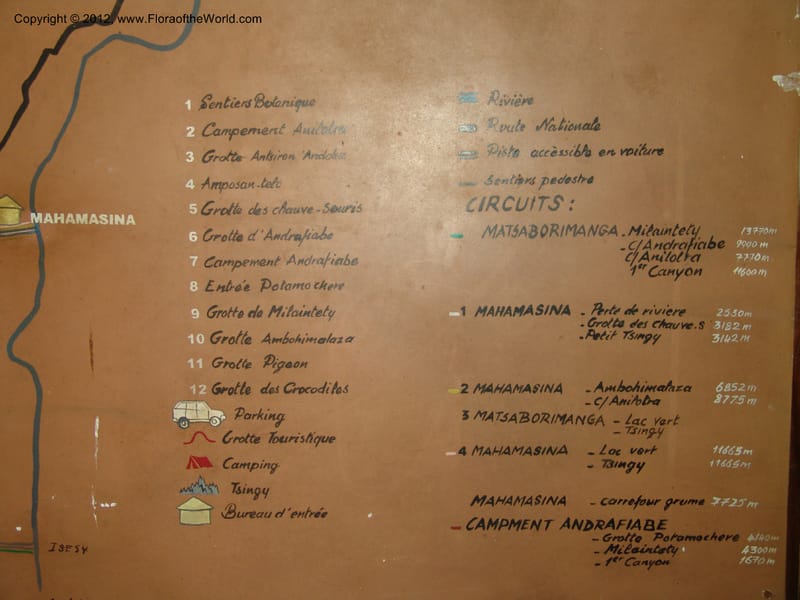 Copyright © 2012 www.FloraoftheWorld.com
MAHAMASINA
1 Sentiers Botanique
2 Campement Anilotra
3 Grotte Antsiron'Andoha
4 Amposan-telo
5 Grotte des chauve-Souris
6 Grotte d'Andrafiabe
7 Campement Andrafiabe
8 Entrée Potamochere
9 Grotte de Milaintety
10 Grotte Ambohimalaza
11 Grotte Pigeon
12 Grotte des Crocodiles
Parking
Grotte Touristique
Camping
Tsingy
Bureau d'entrée
Rivière
Route Nationale
Piste accèssible en voiture
Sentiers pedestre
CIRCUITS:
MATSABORIMANGA - Milaintety 13770m
- C/Andrafiabe 9000m
C/Anilotra 7770m
1er Canyon 11600m
1 MAHAMASINA - Perte de riviere 2530m
- Grotte des chauve.S 3182m
- Petit Tsingy 3142m
2 MAHAMASINA - Ambohimalaza 6852m
- C/Anilotra 8775m
3 MATSABORIMANGA - Lac vert
- Tsingy
4 MAHAMASINA - Lac vert 11665m
- Tsingy 11665m
MAHAMASINA - carrefour grume 7725m
- CAMPMENT ANDRAFIABE
- Grotte Potamochere 4140m
- Milaintety 4300m
- 1er Canyon 1670m